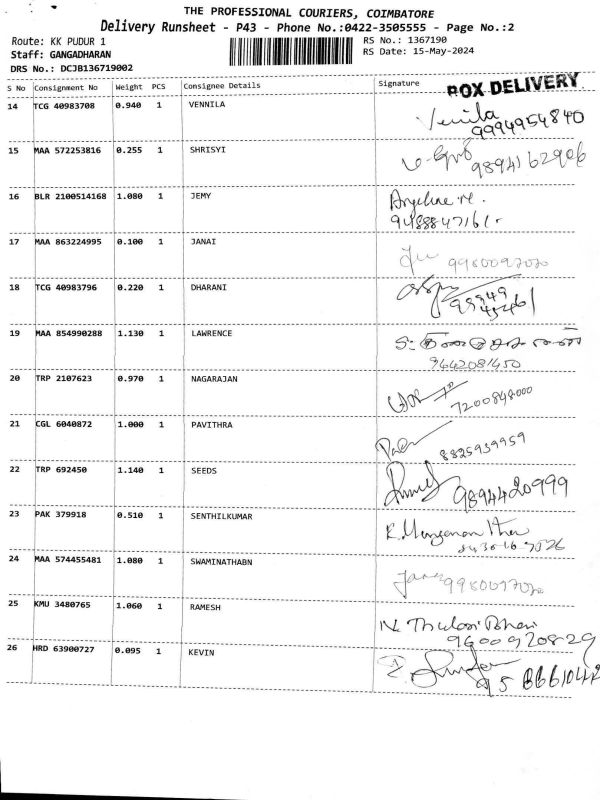 THE PROFESSIONAL COURIERS, COIMBATORE
Delivery Runsheet - P43 - Phone No.:0422-3505555 - Page No.:2
Route: KK PUDUR 1
RS No.: 1367190
Staff: GANGADHARAN
RS Date: 15-May-2024
DRS No.: DCJB136719002
S No Consignment No Weight PCS Consignee Details Signature
BOX DELIVERY
14 TCG 40983708 0.940 1 VENNILA
Vennila
9994954840
15 MAA 572253816 0.255 1 SHRISYI
9894162906
16 BLR 2100514168 1.080 1 JEMY
Angeline M.
9488847161
17 MAA 863224995 0.100 1 JANAI
9980097070
18 TCG 40983796 0.220 1 DHARANI
19 MAA 854990288 1.130 1 LAWRENCE
9642081450
20 TRP 2107623 0.970 1 NAGARAJAN
7200848000
21 CGL 6040872 1.000 1 PAVITHRA
8825939959
22 TRP 692450 1.140 1 SEEDS
9894420999
23 PAK 379918 0.510 1 SENTHILKUMAR
24 MAA 574455481 1.080 1 SWAMINATHABN
9980097070
25 KMU 3480765 1.060 1 RAMESH
N. Thulasi
9600920829
26 HRD 63900727 0.095 1 KEVIN